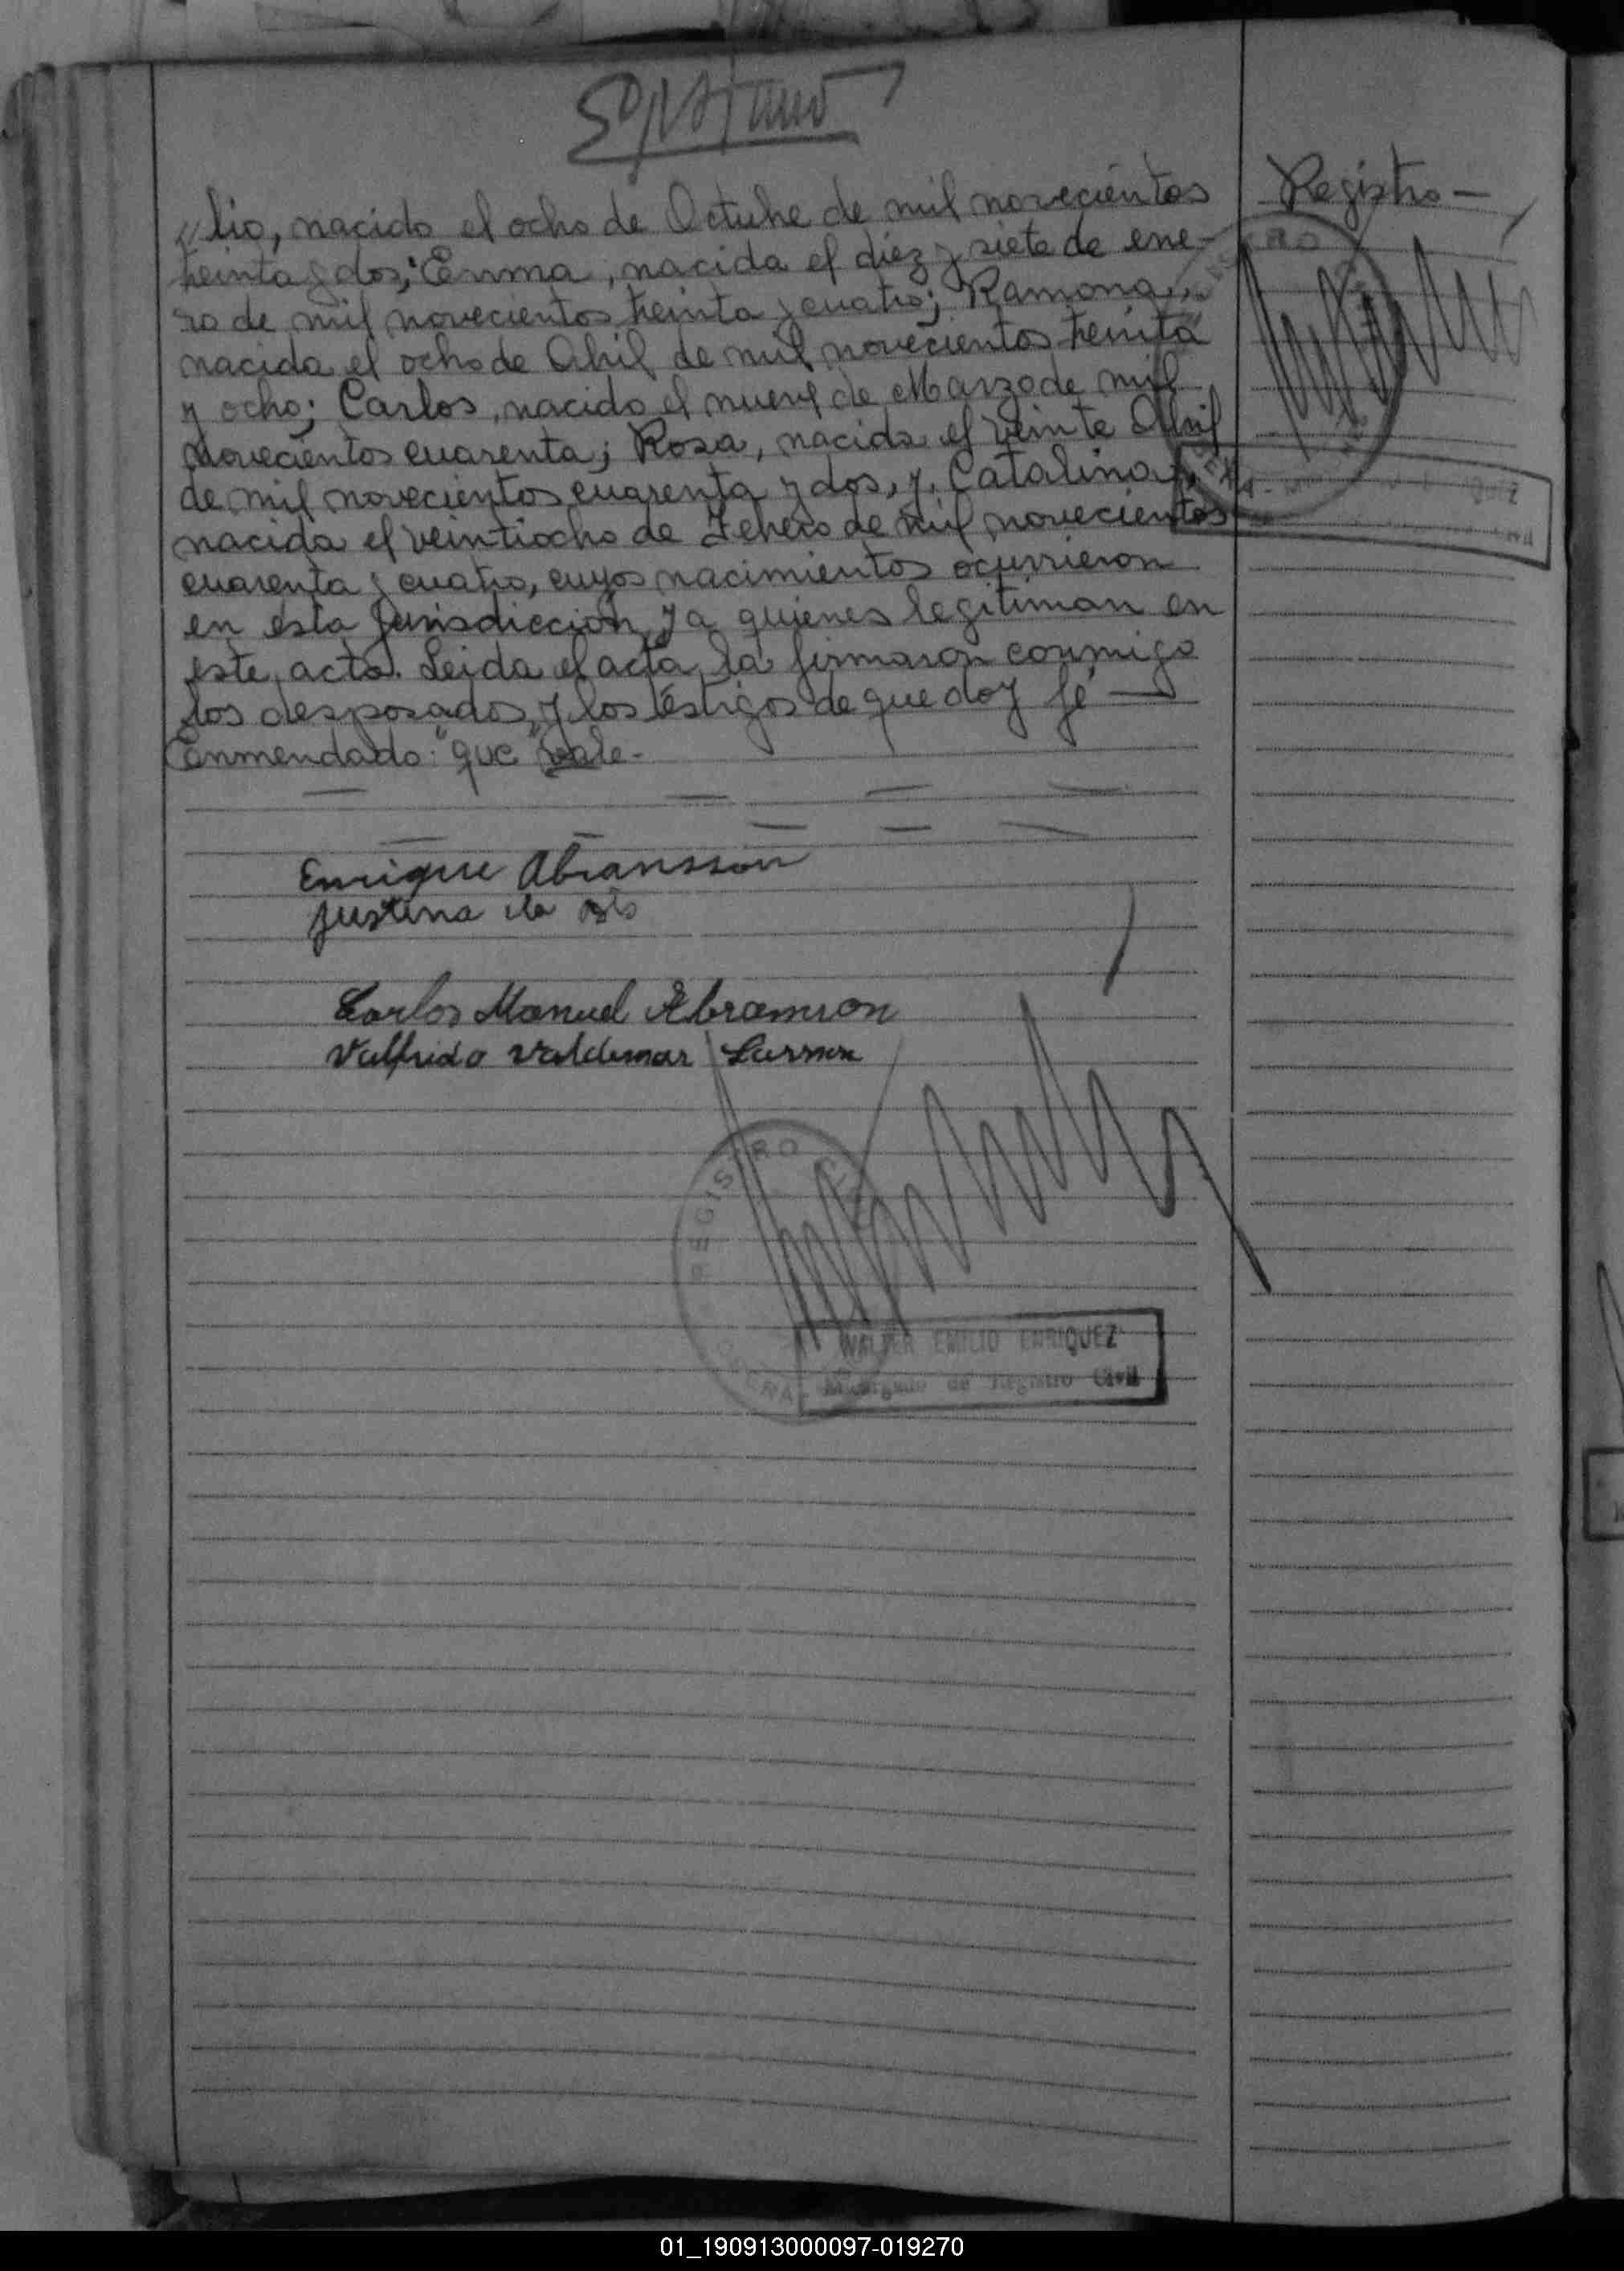 Registro —
lio, nacido el ocho de Octubre de mil novecientos
treinta y dos; Emma, nacida el diez y siete de ene-
ro de mil novecientos treinta y cuatro; Ramona,
nacida el ocho de Abril de mil novecientos treinta
y ocho; Carlos, nacido el nueve de Marzo de mil
novecientos cuarenta; Rosa, nacida el veinte Abril
de mil novecientos cuarenta y dos, y, Catalina,
nacida el veintiocho de Febrero de mil novecientos
cuarenta y cuatro, cuyos nacimientos ocurrieron
en ésta jurisdicción y a quienes legitiman en
este acto. Leida el acta la firmaron conmigo
los desposados y los testigos de que doy fé —
Enmendado: "que" Vale.-
Enrique Abransson
Justina da
Carlos Manuel Abramson
Valfrido Valdemar
REGISTRO
WALTER EMILIO ENRIQUEZ
Encargado de Registro Civil
01_190913000097-019270